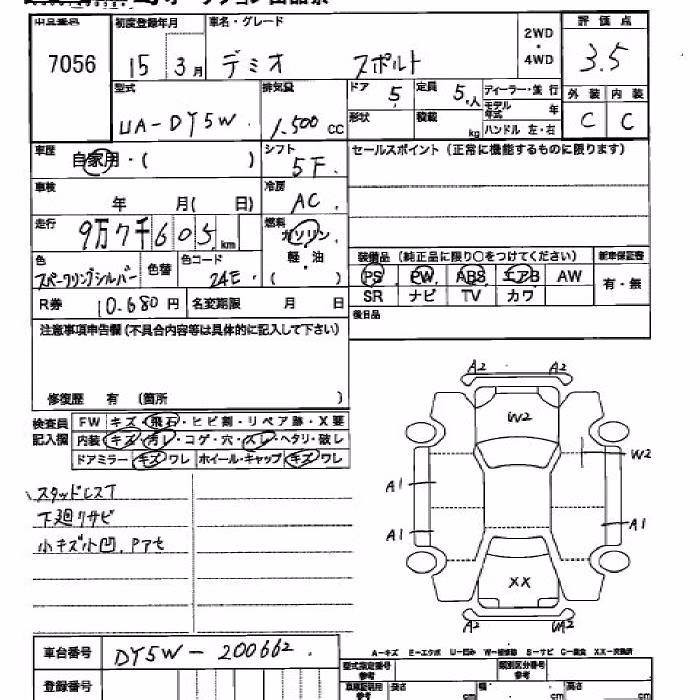 初度登録年月 車名・グレード 評価点
7056 15 3月 デミオ スポルト 2WD・4WD 3.5
型式 排気量 ドア 5 定員 5人 ディーラー・並行 外装 内装
UA-DY5W 1.500 cc 形状 積載 kg モデル年式 年 C C
ハンドル 左・右
車歴 自家用・( ) シフト 5F セールスポイント (正常に機能するものに限ります)
車検 年 月( 日) 冷房 AC
走行 9万7千605 km 燃料 ガソリン・軽・油 ( )
色 スパークリングシルバー 色替 色コード 24E 装備品 (純正品に限り○をつけてください) 新車保証書
PS PW ABS エアB AW 有・無
R券 10.680円 名変期限 月 日 SR ナビ TV カワ
後日品
注意事項申告欄 (不具合内容等は具体的に記入して下さい)
修復歴 有 (箇所 )
検査員記入欄 FW キズ・飛石・ヒビ割・リペア跡・X要
内装 キズ・汚レ・コゲ・穴・スレ・ヘタリ・破レ
ドアミラー キズ ワレ ホイール・キャップ キズ ワレ
A2 A2
W2
W2
A1
A1 A1
XX
A2
スタッドレスT
下廻りサビ
小キズ小凹. Pアセ
A-キズ E-エクボ U-凹み W-補修跡 S-サビ C-腐食 XX-交換済
車台番号 DY5W-200662
型式指定番号 参考 類別区分番号 参考
登録番号 長さ cm 幅 cm 高さ cm